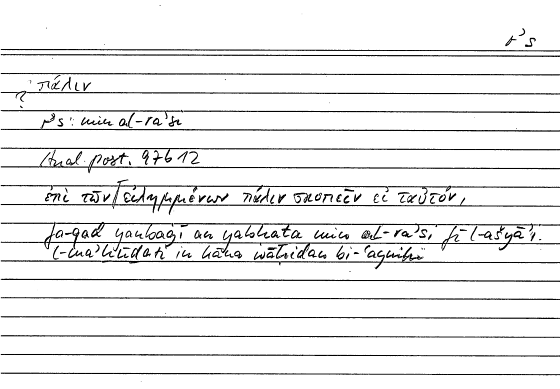 r's
? πάλιν
r's: min al-ra'si
Anal. post. 97b12
ἐπὶ τῶν εἰλημμένων πάλιν σκοπεῖν εἰ ταὐτόν,
fa-qad yanbaġī an yabḥaṯa min al-ra'si fī l-ašyā'i
l-ma'ḫūḏati in kāna wāḥidan bi-'aynihi